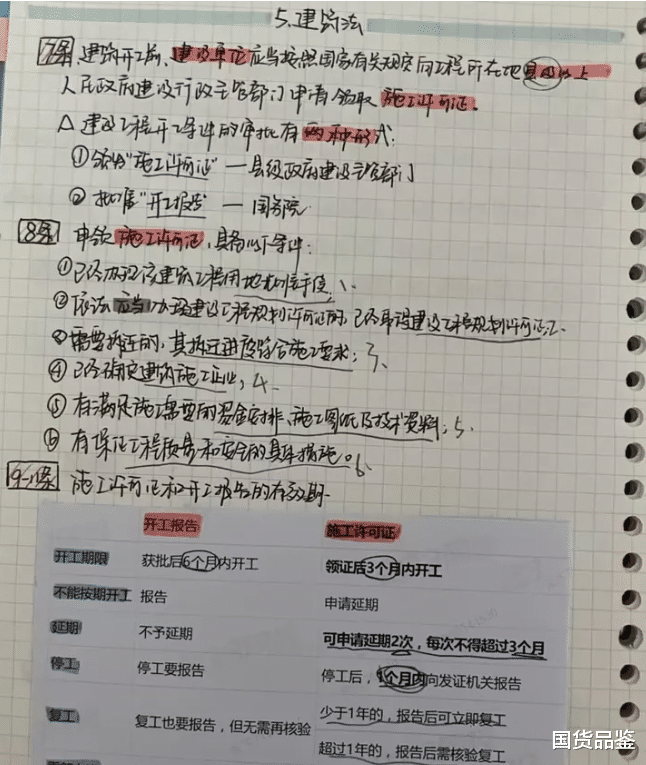 5.建筑法
7条 建筑开工前,建设单位应当按照国家有关规定向工程所在地县级以上
人民政府建设行政主管部门申请领取施工许可证.
△ 建设工程开工条件的审批有两种形式:
①领取"施工许可证"—县级政府建设主管部门
②批准"开工报告"—国务院
8条 申领施工许可证,具备以下条件:
①已经办理该建筑工程用地批准手续、1.
②依法应当办理建设工程规划许可证的,已经取得建设工程规划许可证;2.
③需要拆迁的,其拆迁进度符合施工要求;3.
④已经确定建筑施工企业;4.
⑤有满足施工需要的资金安排、施工图纸及技术资料;5.
⑥有保证工程质量和安全的具体措施。6.
9-11条 施工许可证和开工报告的有效期.
开工报告 施工许可证
开工期限 获批后6个月内开工 领证后3个月内开工
不能按期开工 报告 申请延期
延期 不予延期 可申请延期2次,每次不得超过3个月
停工 停工要报告 停工后,1个月内向发证机关报告
复工 复工也要报告,但无需再核验 少于1年的,报告后可立即复工
超过1年的,报告后需核验复工
国货品鉴